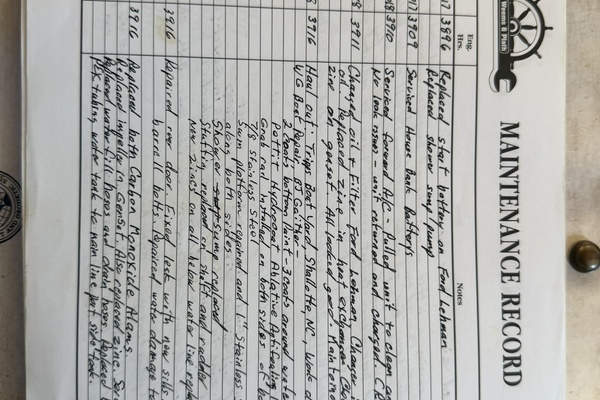 Weems & Plath
MAINTENANCE RECORD
Eng. Hrs.
Notes
17 3896 Replaced start battery on Ford Lehman
Replaced shower sump pump
17 3909 Serviced House Bank batterys
18 3910 Serviced forward A/C - Pulled unit to clean
No leak issues - unit returned and charged
8 3911 Changed oil & Filter Ford Lehman. Change
oil. Replaced zinc in heat exchanger
zinc on genset. All looked good.
8 3916 Haul out: Trips Boat Yard Shallotte, NC, Work
W/G Boat Repair, PJ Gaither -
2 coats bottom Paint - 3 coats around
Pettit Hydrocoat Ablative Antifouling
Grab rail installed on both sides of
7/8 Stainless Steel
Swim platform repaired and 1" Stainless
along both sides
Shower sump replaced
Stuffing replaced on shaft and rudder
New Zincs on all below water line
3916 Repaired rear door. Fixed leak with new
barrel bolts. Repaired water damage to
3916 Replaced both Carbon Monoxide Alarms.
Replaced impeller in Genset. Also replaced zinc.
Replaced water fill hoses and drain hoses. Replaced
PEX tubing water tank to main line port side tank.